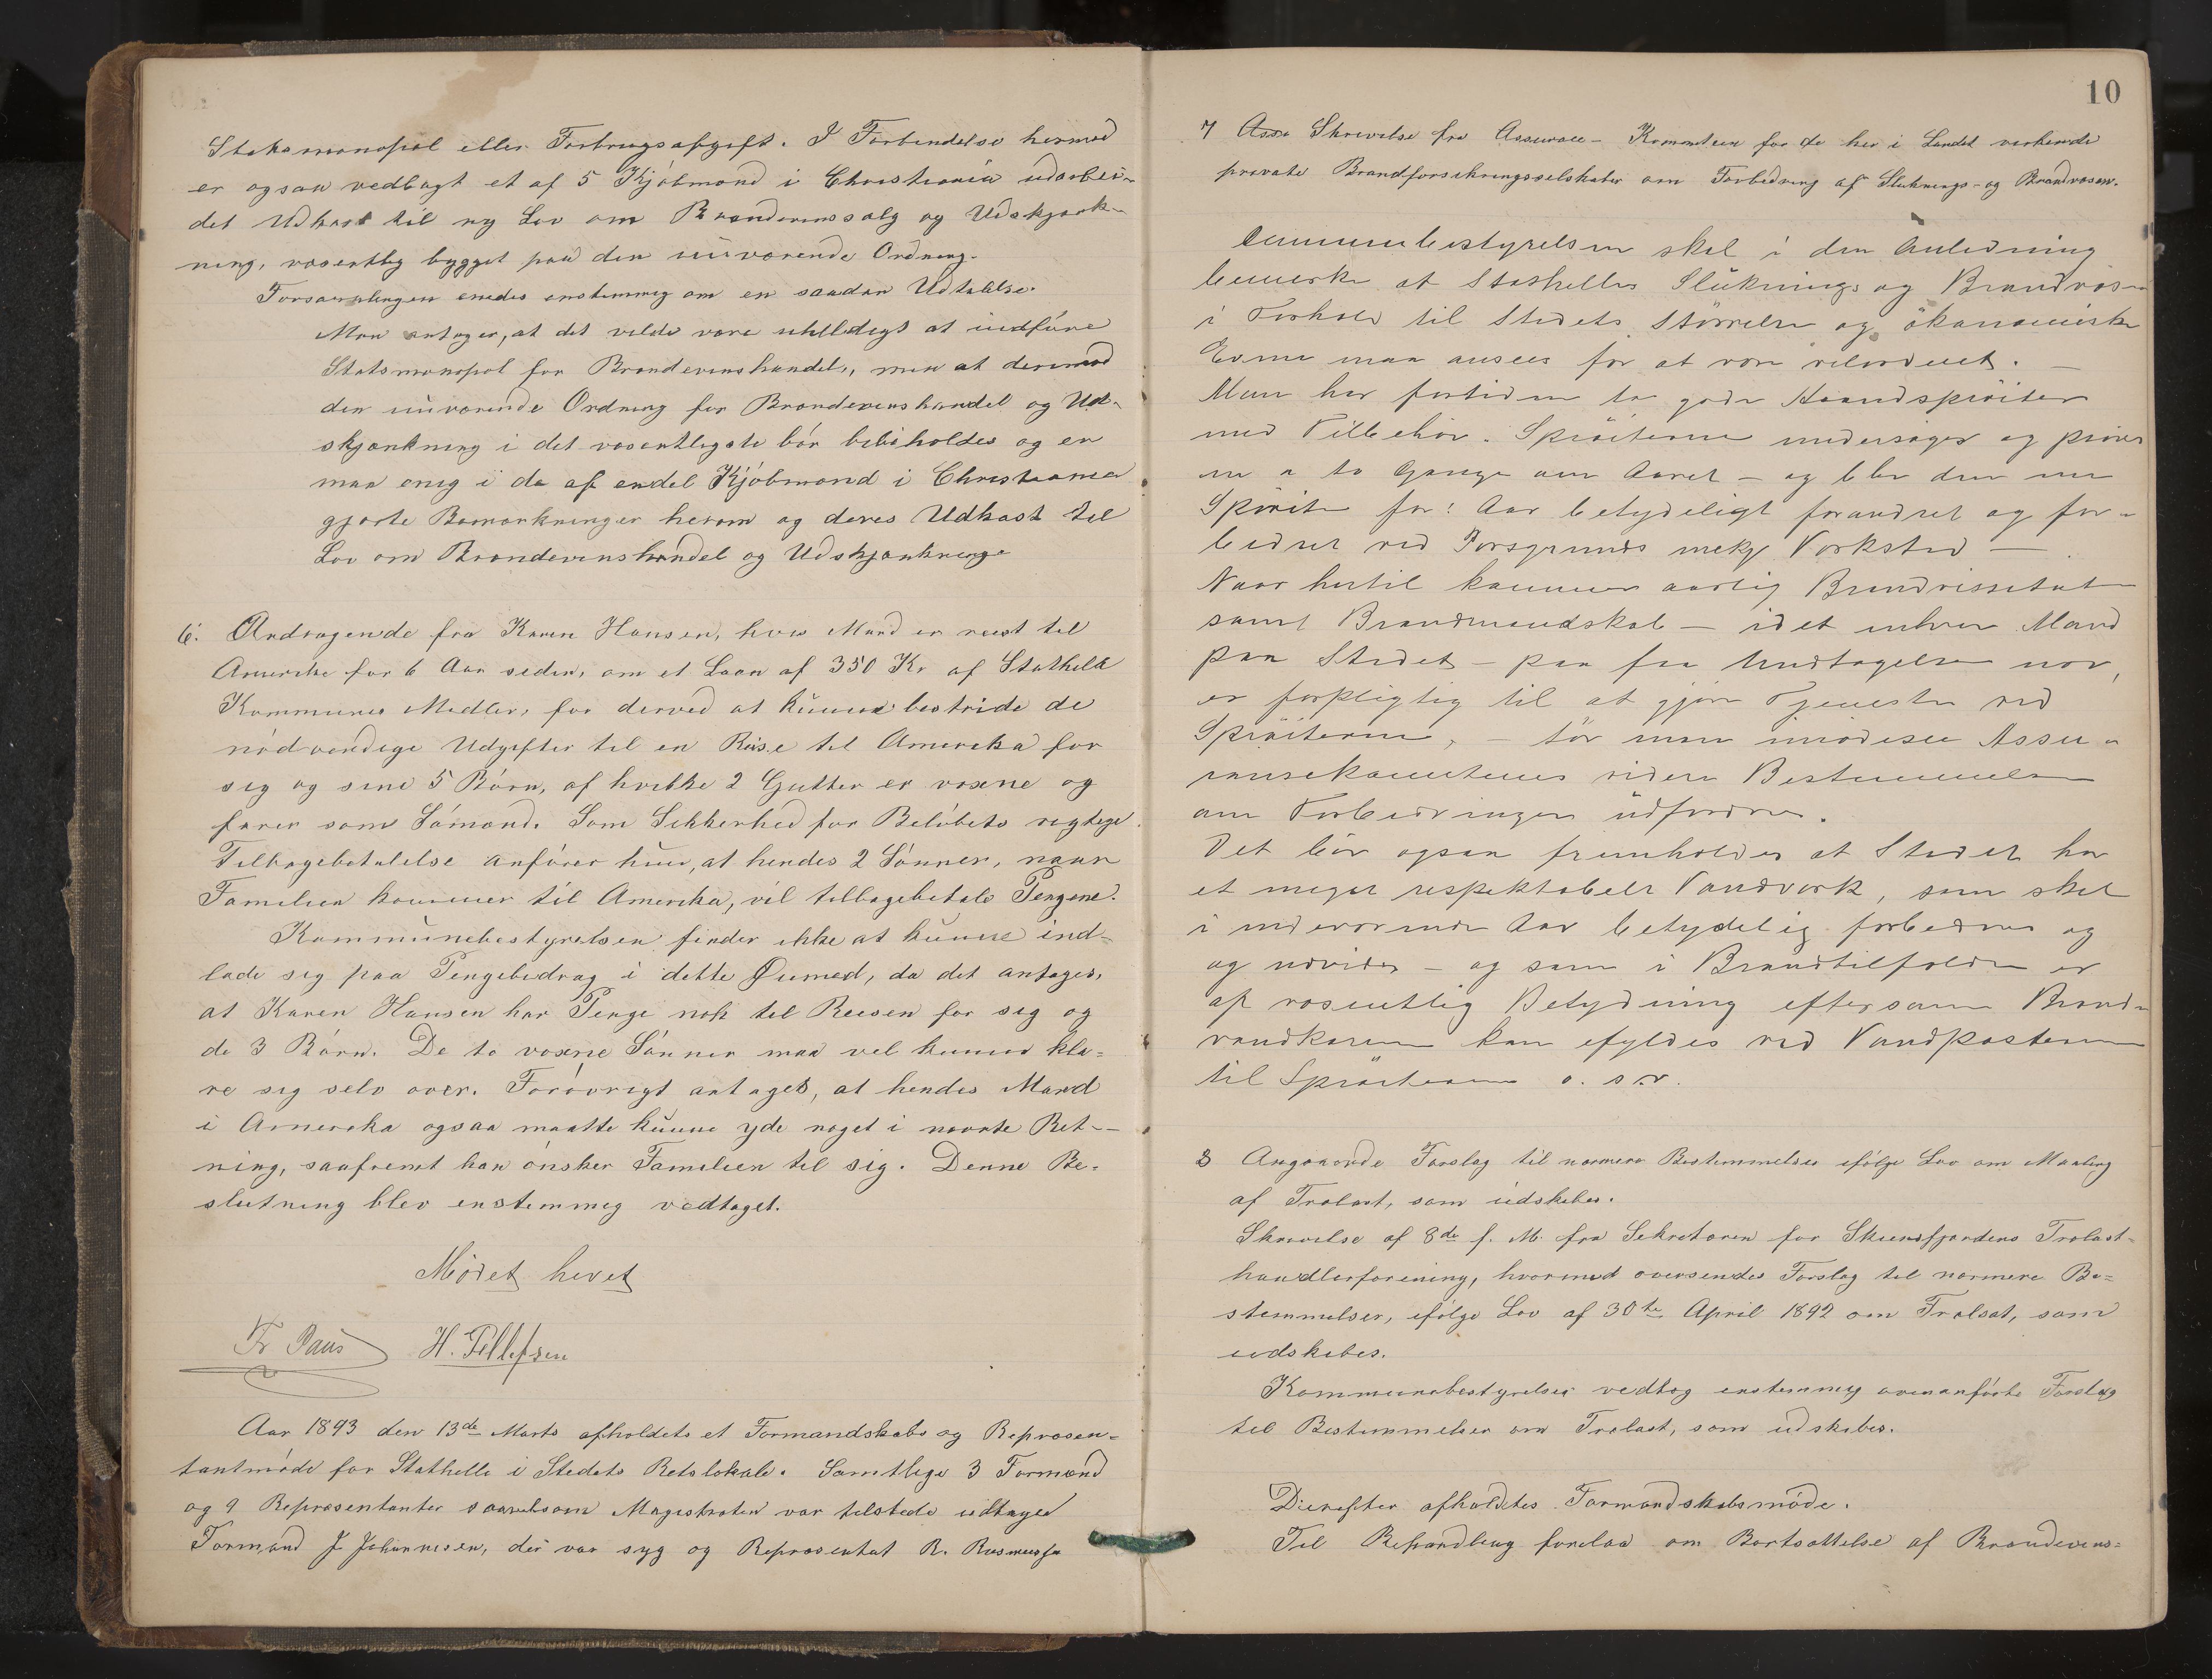 Statsmonopol eller Forbrugsafgift. I Forbindelse hermed
er ogsaa vedlagt et af 5 Kjöbmænd i Christiania udarbei-
det Udkast til ny Lov om Brændevinssalg og Udskjænk-
ning, væsentlig bygget paa den nuværende Ordning.
Forsamlingen enedes enstemmig om en saadan Udtalelse.
Man antager, at det vilde være uheldigt at indföre
Statsmonopol for Brændevinshandel, men at derimod
den nuværende Ordning for Brændevinshandel og Ud-
skjænkning i det væsentligste bör bibeholdes og er
man enig i de af endel Kjöbmænd i Christiania
gjorte Bemærkninger herom og deres Udkast til
Lov om Brændevinshandel og Udskjænkning
6. Andragende fra Karen Hansen, hvis Mand er reist til
Amerika for 6 Aar siden, om et Laan af 350 Kr af Stathelle
Kommunes Midler, for derved at kunne bestride de
nödvendige Udgifter til en Reise til Amerika for
sig og sine 5 Börn, af hvilke 2 Gutter er voxne og
farer som Sömænd. Som Sikkerhed for Belöbets rigtige
Tilbagebetalelse anförer hun, at hendes 2 Sönner, naar
Familien kommer til Amerika, vil tilbagebetale Pengene.
Kommunebestyrelsen finder ikke at kunne ind-
lade sig paa Pengebidrag i dette Öiemed, da det antages,
at Karen Hansen har Penge nok til Reisen for sig og
de 3 Börn. De to voxne Sönner maa vel kunne kla-
re sig selv over. Forövrigt antages, at hendes Mand
i Amerika ogsaa maatte kunne yde noget i nævnte Ret-
ning, saafremt han önsker Familien til sig. Denne Be-
slutning blev enstemmig vedtaget.
Mödet hevet
Fr Paus H. Tellefsen
Aar 1893 den 13de Marts afholdets et Formandskabs og Repræsen-
tantmöde for Stathelle i Stedets Retslokale. Samtlige 3 Formænd
og 9 Repræsentanter saavelsom Magistraten var tilstede udtagen
Formand J Johannesen, der var syg og Repræsentat R. Rasmussen
10
7 Skrivelse fra Assurace- Kommiteen for de her i Landet virkende
private Brandforsikringsselskaber om Forbedring af Sluknings- og Brandvæsen.
Communebestyrelsen skal i den Anledning
bemerke at Stathelles Sluknings og Brandvæsen
i Forhold til Stedets Störrelse og ökonomiske
Evne maa ansees for at være velordnet. —
Man har fortiden to gode Haandspröiter
med Tilbehör. Spröiterne undersöges og pröves
en a to Gange om Aaret — og blev den ene
Spröite for 1 Aar betydeligt forandret og for-
bedret ved Porsgrunds mek Værksted —
Naar hertil kommer aarlig Brandvisitation
samt Brandmandskab — idet enhver Mand
paa Stedet — paa faa Undtagelser nær,
er forpligtig til at gjöre Tjeneste ved
Spröiterne, — tör man imödese Assu-
ransekomiteens videre Bestemmelse
om Forbedringer udfordres.
Det bör ogsaa fremholdes at Stedet har
et meget respektabelt Vandværk, som skal
i indeværende Aar betydelig forbedres og
og udvides — og som i Brandtilfælde er
af væsentlig Betydning eftersom Brand-
vandkarene kan efyldes ved Vandposterne
til Spröiterne o. s.v.
8 Angaaende Forslag til nærmere Bestemmelser ifölge Lov om Maaling
af Trælast, som udskibes.
Skrivelse af 8de f. M. fra Sekretæren for Skiensfjordens Trælast-
handlerforening, hvormed oversendes Forslag til nærmere Be-
stemmelser, ifölge Lov af 30te April 1892 om Trælsat, som
udskibes.
Kommunebestyrelsen vedtog enstemmig ovenanförte Forslag
til Bestemmelser om Trælast, som udskibes.
Dierefter afholdtes Formandskabsmöde.
Til Behandling forelaa om Bortsættelse af Brændevins-